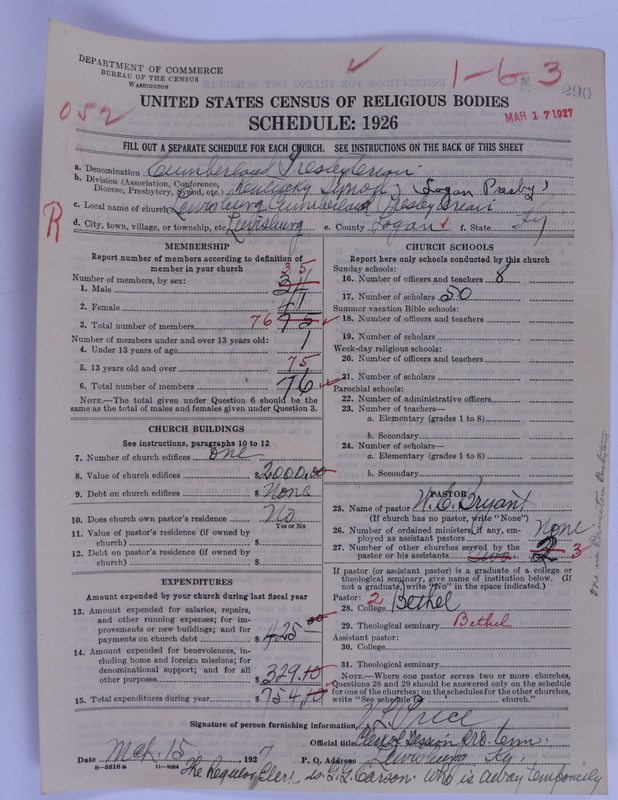 DEPARTMENT OF COMMERCE
BUREAU OF THE CENSUS
WASHINGTON
1-6-3
290
052
MAR 17 1927
UNITED STATES CENSUS OF RELIGIOUS BODIES
SCHEDULE: 1926
FILL OUT A SEPARATE SCHEDULE FOR EACH CHURCH. SEE INSTRUCTIONS ON THE BACK OF THIS SHEET
a. Denomination Cumberland Presbyterian
b. Division (Association, Conference, Diocese, Presbytery, Synod, etc.) Kentucky Synod (Logan Presby)
R
c. Local name of church Lewisburg Cumberland Presbyterian
d. City, town, village, or township, etc. Lewisburg e. County Logan f. State Ky
MEMBERSHIP
Report number of members according to definition of member in your church
Number of members, by sex:
1. Male 35 34
2. Female 41
3. Total number of members 76 75
Number of members under and over 13 years old:
4. Under 13 years of age 1
5. 13 years old and over 75
6. Total number of members 76
NOTE.—The total given under Question 6 should be the same as the total of males and females given under Question 3.
CHURCH BUILDINGS
See instructions, paragraphs 10 to 12
7. Number of church edifices one
8. Value of church edifices $2000.00
9. Debt on church edifices $None
10. Does church own pastor's residence? No
Yes or No
11. Value of pastor's residence (if owned by church) $
12. Debt on pastor's residence (if owned by church) $
EXPENDITURES
Amount expended by your church during last fiscal year
13. Amount expended for salaries, repairs, and other running expenses; for improvements or new buildings; and for payments on church debt $425 00
14. Amount expended for benevolences, including home and foreign missions; for denominational support; and for all other purposes $329.10
15. Total expenditures during year $754.10
CHURCH SCHOOLS
Report here only schools conducted by this church
Sunday schools:
16. Number of officers and teachers 8
17. Number of scholars 50
Summer vacation Bible schools:
18. Number of officers and teachers
19. Number of scholars
Week-day religious schools:
20. Number of officers and teachers
21. Number of scholars
Parochial schools:
22. Number of administrative officers
23. Number of teachers—
a. Elementary (grades 1 to 8)
b. Secondary
24. Number of scholars—
a. Elementary (grades 1 to 8)
b. Secondary
PASTOR
25. Name of pastor W. C. Bryant
(If church has no pastor, write "None")
26. Number of ordained ministers, if any, employed as assistant pastors None
27. Number of other churches served by the pastor or his assistants two 2 3
If pastor (or assistant pastor) is a graduate of a college or theological seminary, give name of institution below. (If not a graduate, write "No" in the space indicated.)
Pastor: 2
28. College Bethel
29. Theological seminary Bethel
Assistant pastor:
30. College
31. Theological seminary
NOTE.—Where one pastor serves two or more churches, Questions 28 and 29 should be answered only on the schedule for one of the churches; on the schedules for the other churches, write "See schedule for church."
one in Princeton Presbytery
Signature of person furnishing information Price
Official title Clerk of Session Pro tem.
Date Mch 15, 1927 P. O. Address Lewisburg Ky.
8-5518 a 11-9084
The Regular Clerk is G. L. Carson. Who is away temporarily